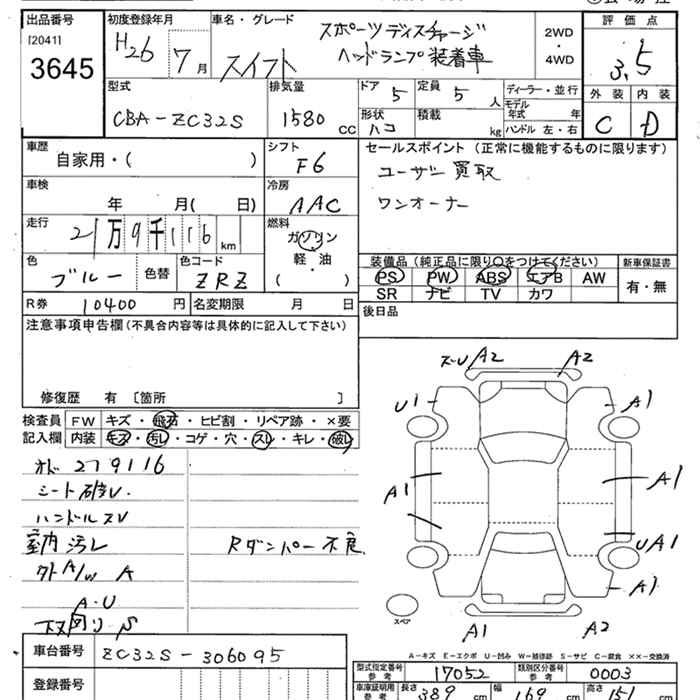 出品番号 初度登録年月 車名・グレード 評価点
[2041] H26 7月 スイフト スポーツ ディスチャージ 2WD ・ 4WD
3645 ヘッドランプ装着車 3.5
型式 排気量 ドア 5 定員 5 人 ディーラー・並行 外装 内装
CBA-ZC32S 1580 cc 形状 ハコ 積載 kg モデル年式 年 C D
ハンドル 左・右
車歴 シフト セールスポイント (正常に機能するものに限ります)
自家用・( ) F6 ユーザー買取
車検 冷房 ワンオーナー
年 月( 日) AAC
走行 燃料
21万9千116 km ガソリン
軽・油
( )
色 色コード 装備品 (純正品に限り○をつけてください) 新車保証書
ブルー 色替 ZRZ PS PW ABS エアB AW 有・無
SR ナビ TV カワ
R券 10400 円 名変期限 月 日 後日品
注意事項申告欄 (不具合内容等は具体的に記入して下さい)
修復歴 有 〔箇所 〕
検査員 FW キズ・飛石・ヒビ割・リペア跡・×要
記入欄 内装 キズ・汚レ・コゲ・穴・スレ・キレ・破レ
オド 219116
シート破レ
ハンドルスレ
室内汚レ Rダンパー不良
外A/W A
A・U
下回り S
A2 A2
U1 A1
A1 A1
UA1
A1
A1 A2
スペア
A-キズ E-エクボ U-凹み W-補修跡 S-サビ C-腐食 ××-交換済
車台番号 ZC32S-306095 型式指定番号 参考 17052 類別区分番号 参考 0003
登録番号 車庫証明用 参考 長さ 389 cm 幅 169 cm 高さ 151 cm